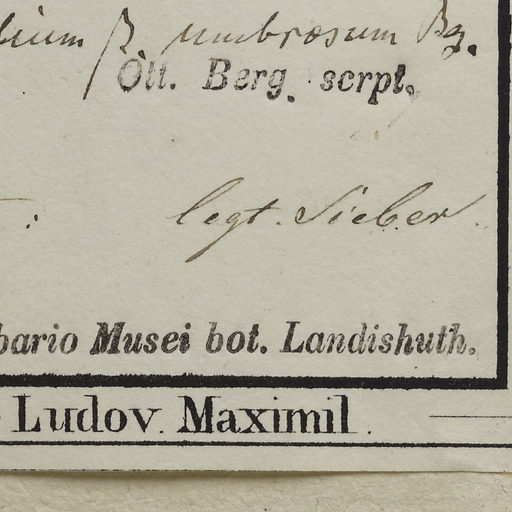 lium β umbrosum Bg.
Ott. Berg. scrpt.
: legt. Sieber.
bario Musei bot. Landishuth.
Ludov. Maximil.